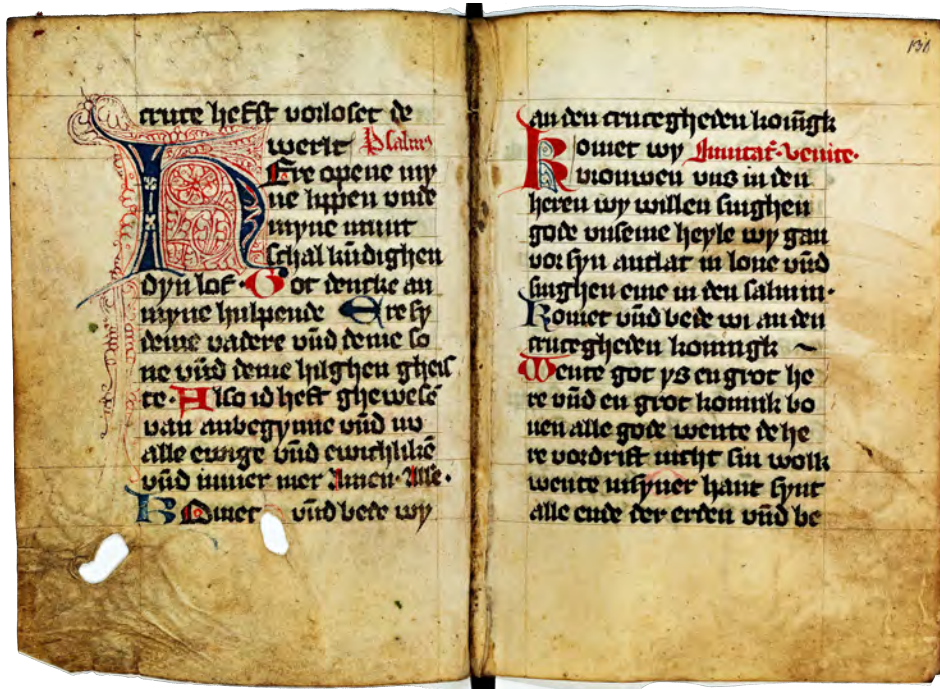 cruce hefst vorloset de
werlt Psalm
HEre opene my
ne lippen unde
myne munt
schal kūdighen
dyn lof · Got dencke an
myne hulpende Ere sy
deme vadere vñd deme so
ne vñd deme hilghen gheis
te · Also id heft ghewesē
van anbegynne vñd nv
alle ewige vñd ewichlikē
vñd immer mer Amen · Alle ·
KOmet vñd bede wy
130
an den crucegheden koīngk
Komet wy Inuitat̄ · venite ·
vrouwen vns in den
heren wy willen singhen
gode vnseme heyle wy gan
vor syn antlat in loue vñd
singhen eme in den salmin ·
Komet vñd bede wi an den
crucegheden koningk ~
Wente got ys en grot he
re vñd en grot konink bo
uen alle gode wente de he
re vordrift nicht sin wolk
wente insyner hant synt
alle ende der erden vñd be